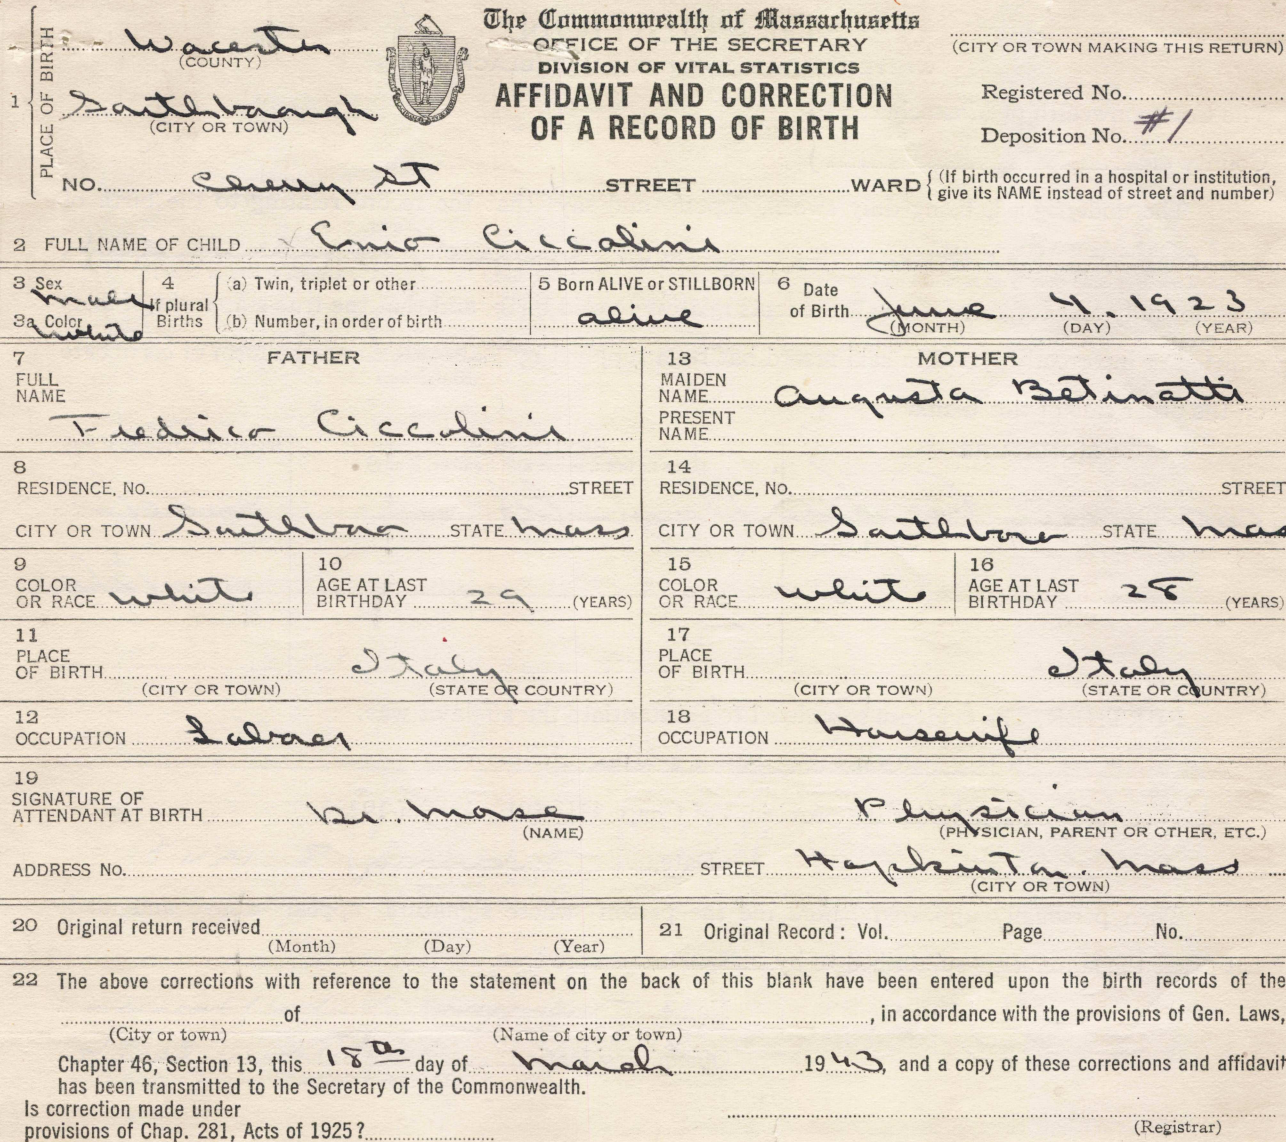 The Commonwealth of Massachusetts
OFFICE OF THE SECRETARY
DIVISION OF VITAL STATISTICS
AFFIDAVIT AND CORRECTION
OF A RECORD OF BIRTH
(CITY OR TOWN MAKING THIS RETURN)
Registered No.
Deposition No. #1
1 PLACE OF BIRTH
Worcester
(COUNTY)
Southborough
(CITY OR TOWN)
NO. Cherry St STREET WARD { (If birth occurred in a hospital or institution, give its NAME instead of street and number)
2 FULL NAME OF CHILD Enio Ciccolini
3 Sex Male
3a Color White
4 If plural Births
(a) Twin, triplet or other
(b) Number, in order of birth
5 Born ALIVE or STILLBORN
alive
6 Date of Birth June 4, 1923
(MONTH) (DAY) (YEAR)
7 FATHER
FULL NAME
Fredrico Ciccolini
8
RESIDENCE, No. STREET
CITY OR TOWN Southboro STATE Mass
9 COLOR OR RACE White
10 AGE AT LAST BIRTHDAY 29 (YEARS)
11 PLACE OF BIRTH Italy
(CITY OR TOWN) (STATE OR COUNTRY)
12 OCCUPATION Laborer
13 MOTHER
MAIDEN NAME Augusta Betinatti
PRESENT NAME
14
RESIDENCE, No. STREET
CITY OR TOWN Southboro STATE Mass
15 COLOR OR RACE White
16 AGE AT LAST BIRTHDAY 28 (YEARS)
17 PLACE OF BIRTH Italy
(CITY OR TOWN) (STATE OR COUNTRY)
18 OCCUPATION Housewife
19
SIGNATURE OF ATTENDANT AT BIRTH Dr. Morse Physician
(NAME) (PHYSICIAN, PARENT OR OTHER, ETC.)
ADDRESS No. STREET Hopkinton. Mass
(CITY OR TOWN)
20 Original return received
(Month) (Day) (Year)
21 Original Record: Vol. Page No.
22 The above corrections with reference to the statement on the back of this blank have been entered upon the birth records of the
of , in accordance with the provisions of Gen. Laws,
(City or town) (Name of city or town)
Chapter 46, Section 13, this 18th day of March 1943, and a copy of these corrections and affidavit
has been transmitted to the Secretary of the Commonwealth.
Is correction made under
provisions of Chap. 281, Acts of 1925?
(Registrar)